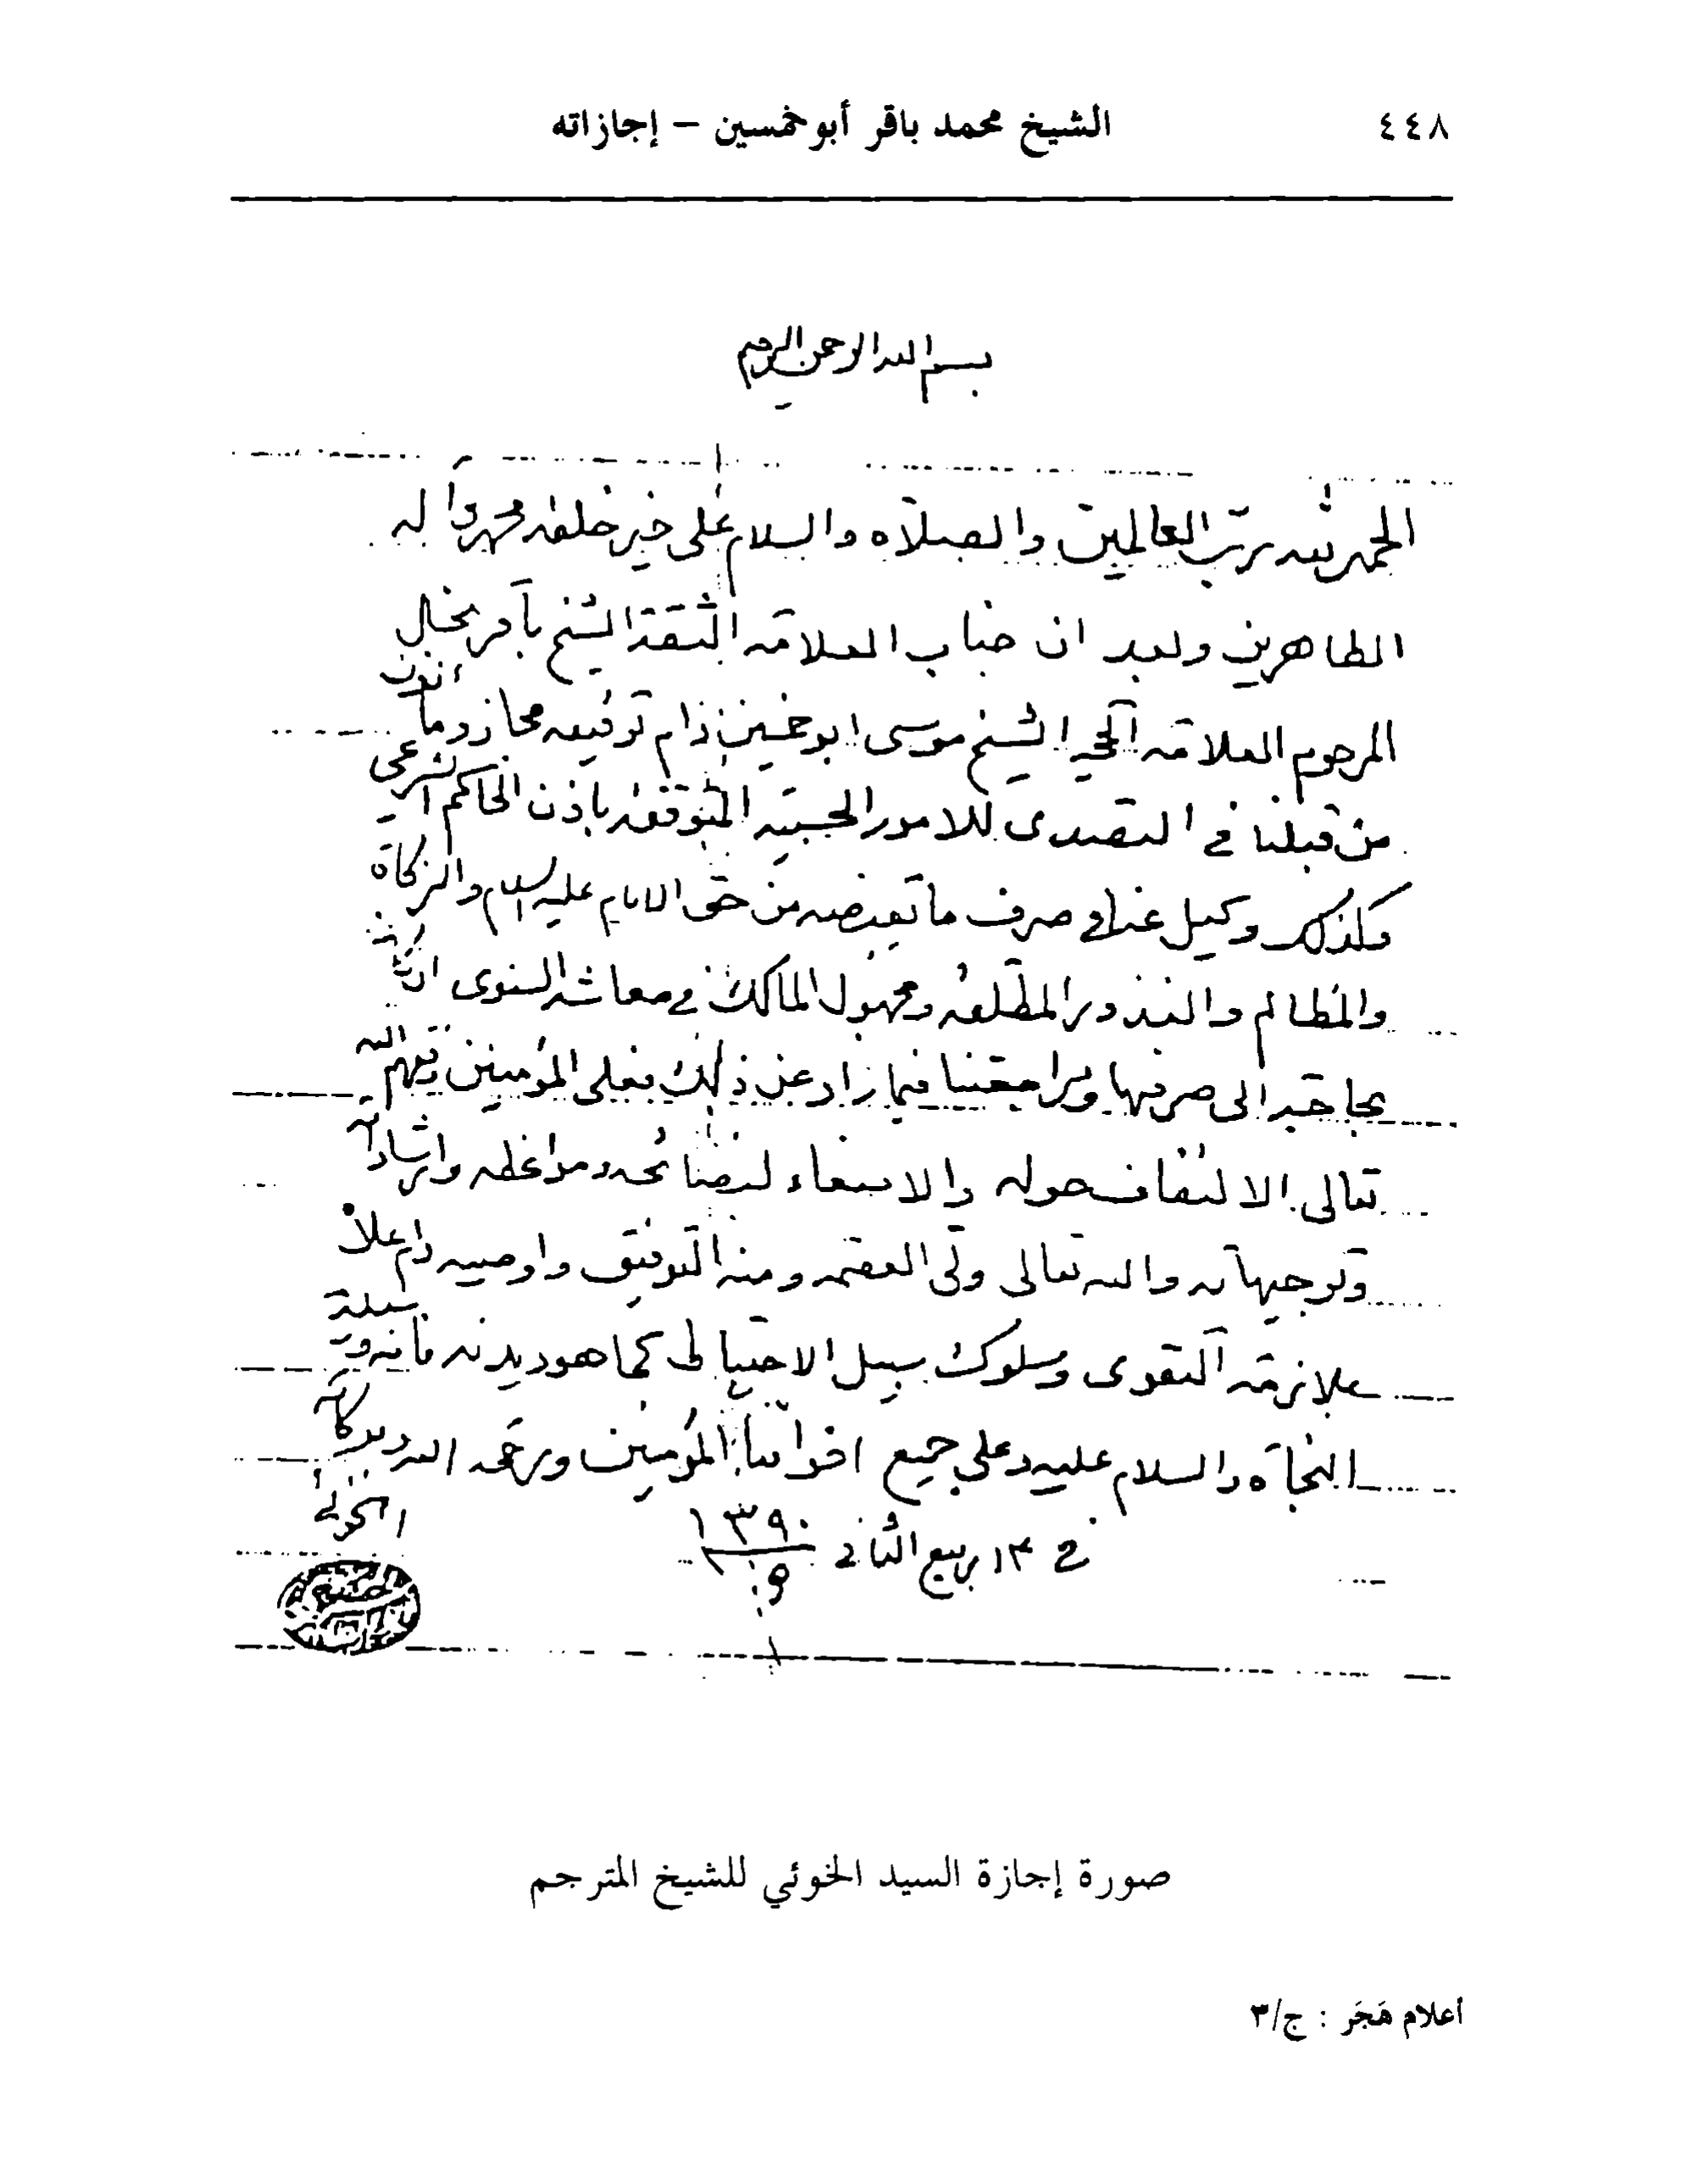 ٤٤٨
الشيخ محمد باقر أبو خمسين – إجازاته
بسم الله الرحمن الرحيم
الحمد لله رب العالمين والصلاة والسلام على خير خلقه محمد وآله
الطاهرين وبعد ان جناب العلامة الثقة الشيخ باقر نجل
المرحوم العلامة الحجة الشيخ موسى ابو خمسين دام توفيقه مجاز ومأذون
من قبلنا في التصدى للامور الحسبية المتوقفة باذن الحاكم الشرعي
وكذلك وكيل عنا في صرف ما تقبضه من حق الامام عليه السلام والزكاة
والمظالم والنذور المطلقة ومجهول المالك في معاشه السنوى ان كانت
بحاجة الى صرفها ويراجعنا فيما زاد عن ذلك فعلى المؤمنين وفقهم الله
تعالى الالتفاف حوله والاصغاء لنصائحه ومواعظه وارشاداته
وتوجيهاته والله تعالى ولي العصمة ومنه التوفيق واوصيه دام علاه
بملازمة التقوى وسلوك سبيل الاحتياط كما هو ديدنه فانه وسيلة
النجاة والسلام عليه وعلى جميع اخواننا المؤمنين ورحمة الله وبركاته
في ١٣ ربيع الثاني ١٣٩٠ هـ
الخوئي
صورة إجازة السيد الخوئي للشيخ المترجم
أعلام هَجَر : ج/٣